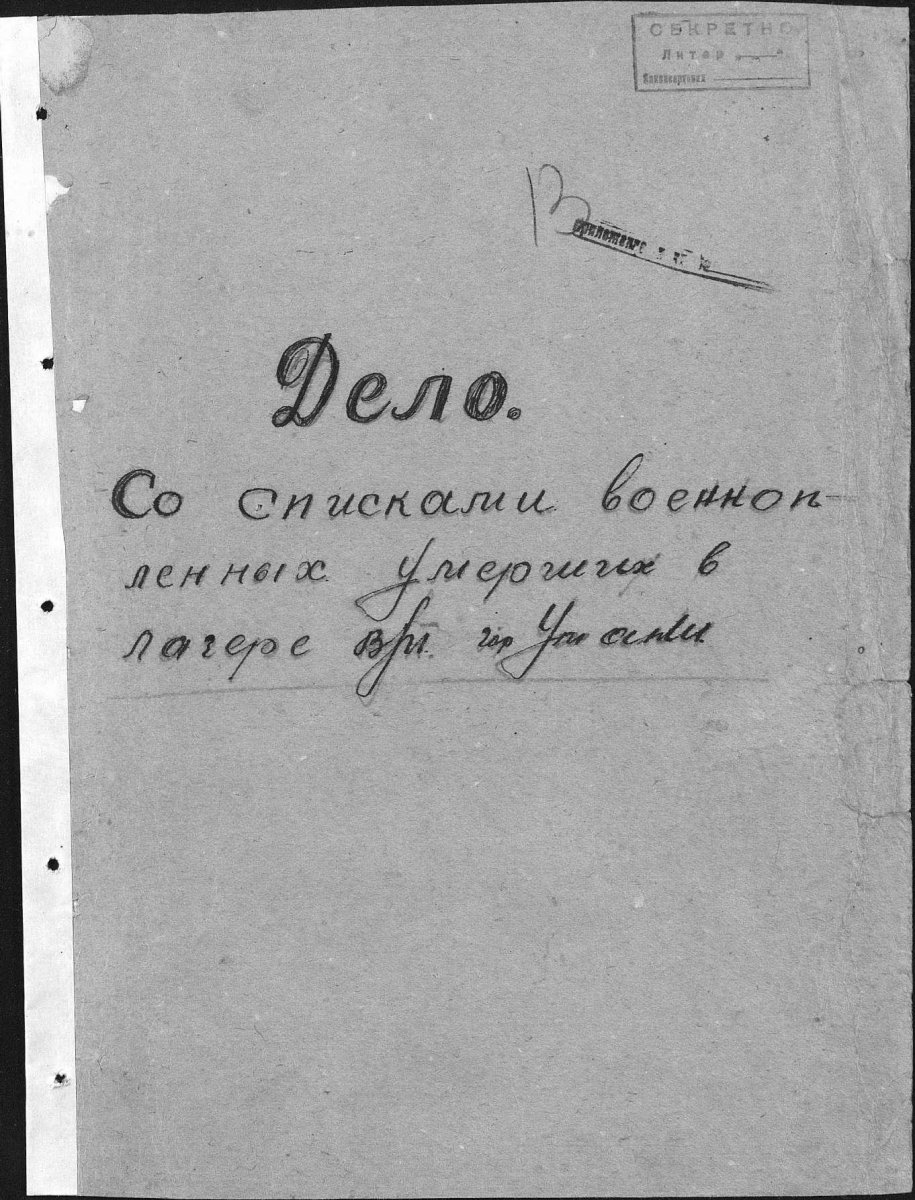 СЕКРЕТНО
Литер
Дело.
Со списками военноп-
ленных умерших в
лагере гор Умани